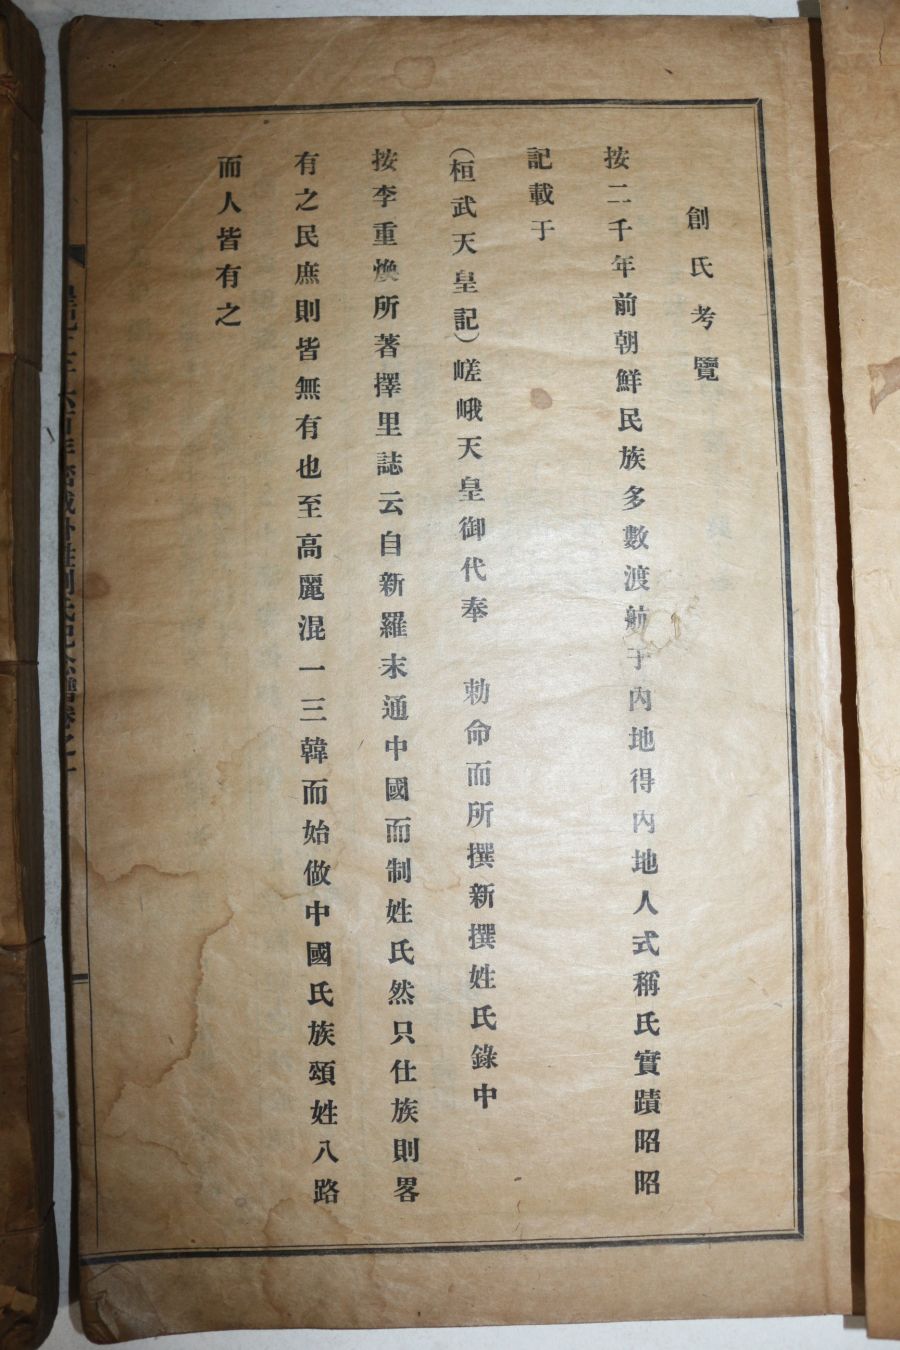 創氏考覽
按二千年前朝鮮民族多數渡航于內地得內地人式稱氏實蹟昭昭
記載于
(桓武天皇記)嵯峨天皇御代奉 勅命而所撰新撰姓氏錄中
按李重煥所著擇里誌云自新羅末通中國而制姓氏然只仕族則畧
有之民庶則皆無有也至高麗混一三韓而始做中國氏族頌姓八路
而人皆有之